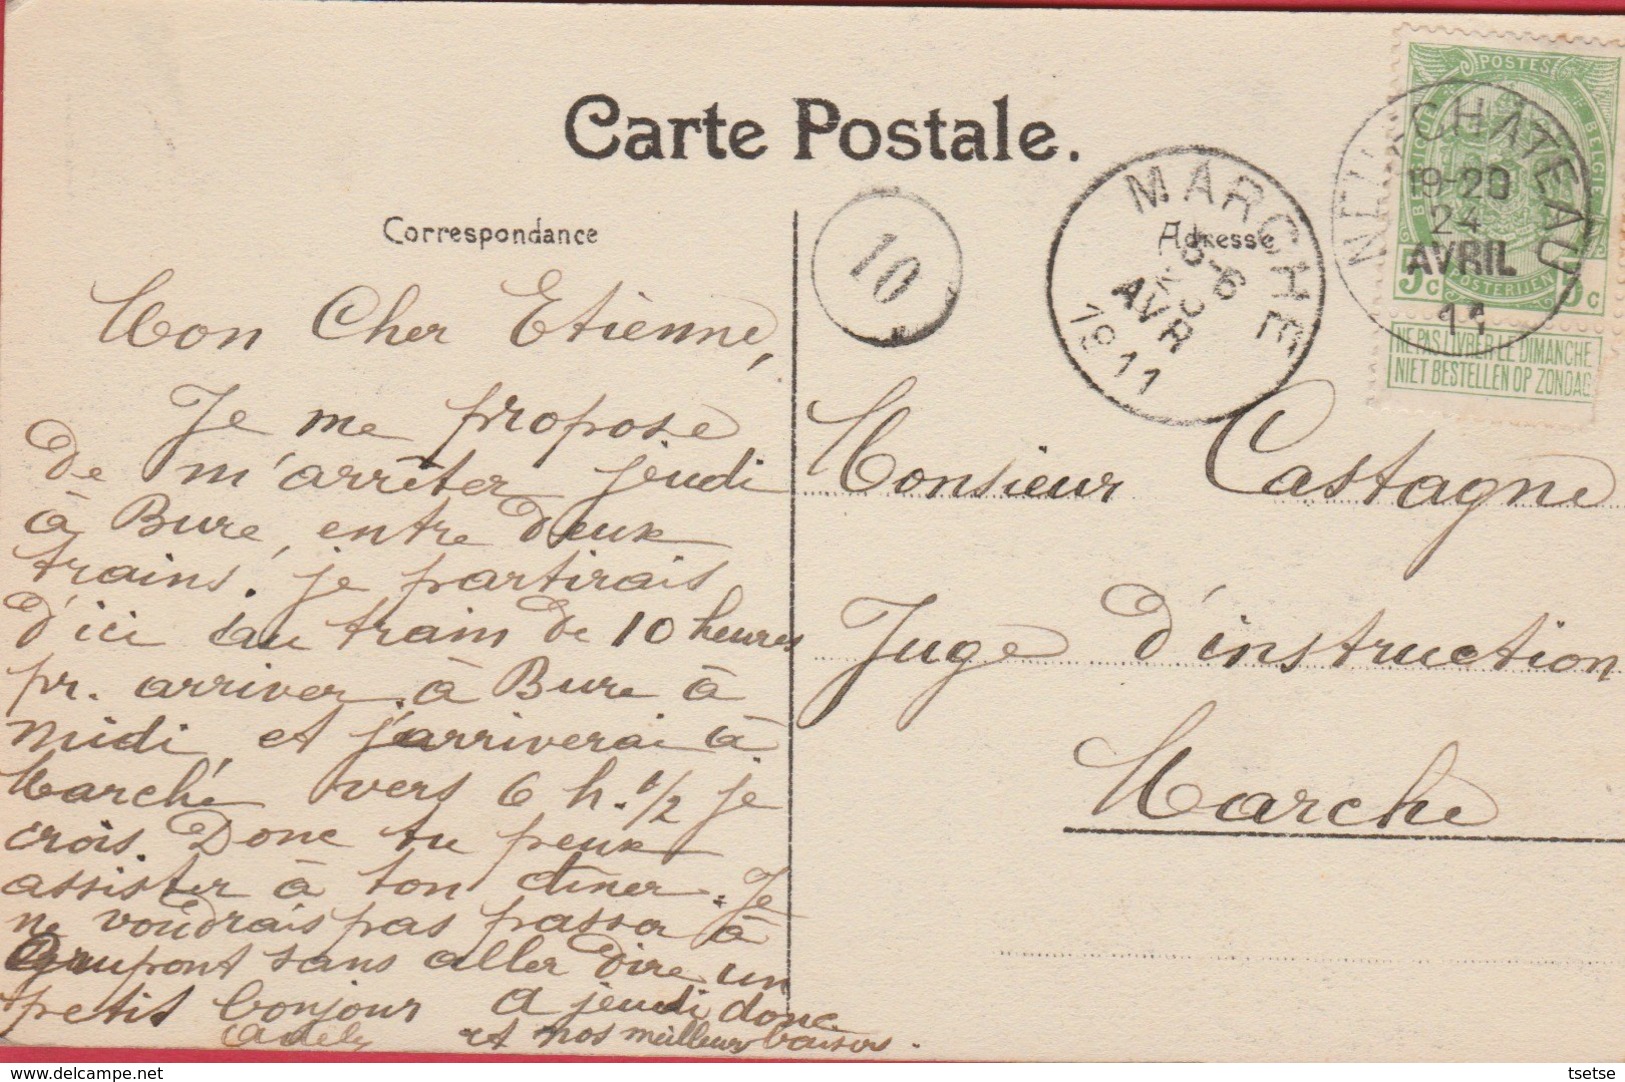 Carte Postale.
Correspondance
Adresse
10
MARCHE
5-6
AVR
1911
NEUFCHATEAU
19-20
24
AVRIL
11
POSTES
BELGIQUE
BELGIE
POSTERIJEN
5c 5c
NE PAS LIVRER LE DIMANCHE
NIET BESTELLEN OP ZONDAG
Mon Cher Etienne,
Je me propose
de m'arrêter jeudi
à Bure, entre deux
trains. je partirais
d'ici au train de 10 heures
pr. arriver à Bure à
midi, et j'arriverai à
Marche vers 6 h. 1/2 je
crois. Donc tu peux
assister à ton dîner. Je
ne voudrais pas passer à
Grupont sans aller dire un
petit bonjour A jeudi donc
et nos meilleurs baisers.
Adel
Monsieur Castagne
Juge d'instruction
Marche
delcampe.net
tsetse